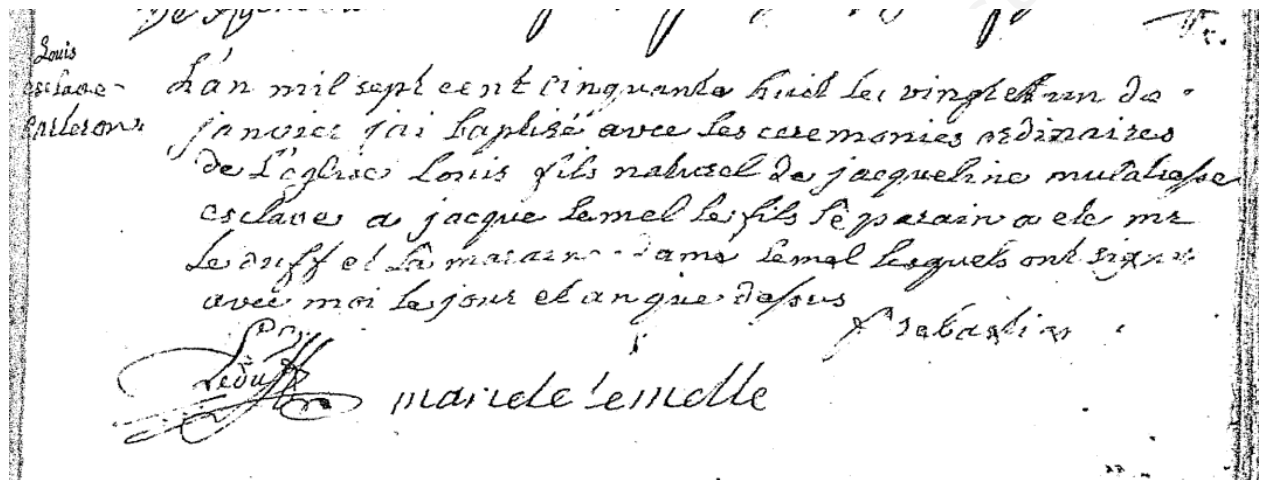 Louis
esclave
L'an mil sept cent cinquante huit le vingtet un de
janvier jai baptisé avec les ceremonies ordinaires
de L'églisé Louis fils naturel de jacqueline mulâtresse
esclave a jacque Lemel le fils Le parain a ete mr
Le duff et La maraine dame Lemel Lesquels ont signe
avec moi le jour et an que dessus
f sebastien
Leduff
Lemelle